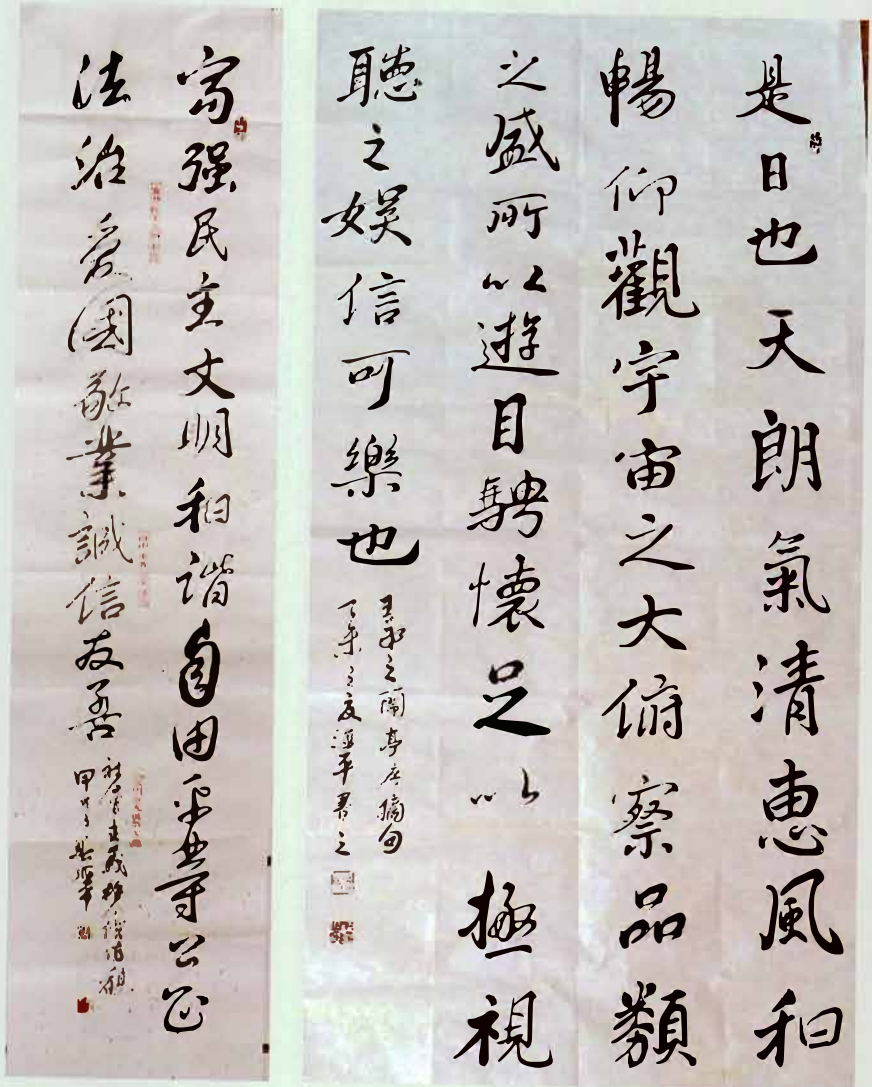 是日也天朗氣清惠風和
暢仰觀宇宙之大俯察品類
之盛所以遊目騁懷足以極視
聽之娛信可樂也
王羲之蘭亭序摘句
丁未之夏 平書之
富强民主文明和谐自由平等公正
法治爱國敬業誠信友善
社會主義核心價值觀
甲午之